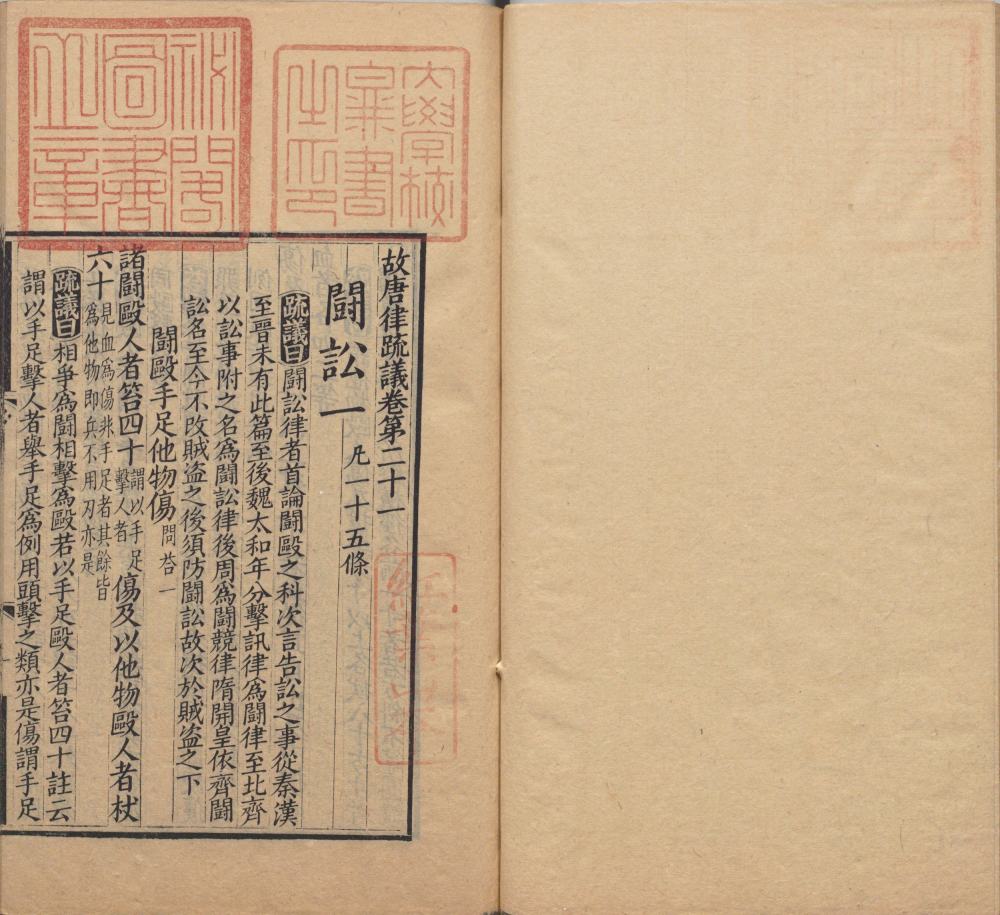 故唐律疏議卷第二十一
鬪訟一 凡一十五條
疏議曰鬪訟律者首論鬪毆之科次言告訟之事從秦漢
至晉未有此篇至後魏太和年分擊訊律為鬪律至北齊
以訟事附之名為鬪訟律後周為鬪競律隋開皇依齊鬪
訟名至今不改賊盗之後須防鬪訟故次於賊盗之下
鬪毆手足他物傷 問荅一
諸鬪毆人者笞四十 謂以手足擊人者 傷及以他物毆人者杖
六十 見血為傷非手足者其餘皆為他物即兵不用刃亦是
疏議曰相爭為鬪相擊為毆若以手足毆人者笞四十註云
謂以手足擊人者舉手足為例用頭擊之類亦是傷謂手足
大學校
棄書
之印
秘閣
圖書
之章